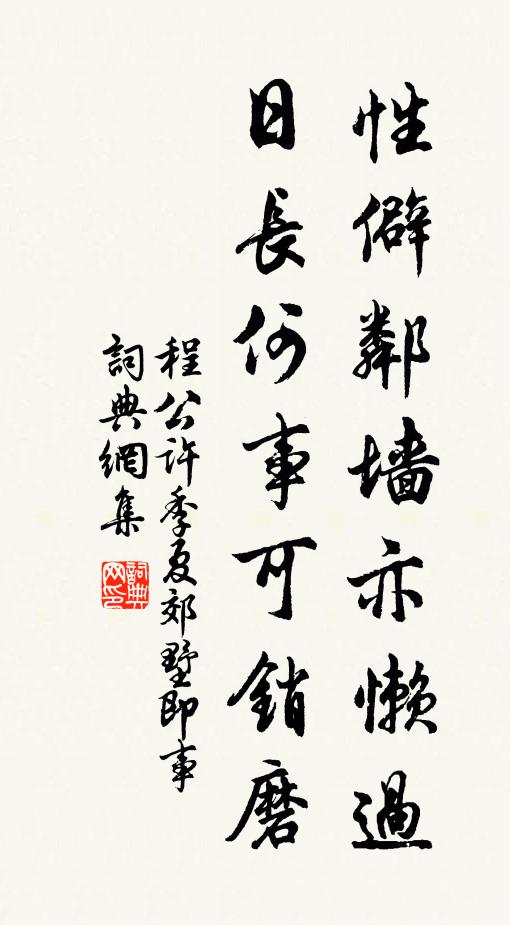 性僻鄰墻亦懒過
日長何事可銷磨
程公許季夏郊墅即事
詞典網集
詞典网印